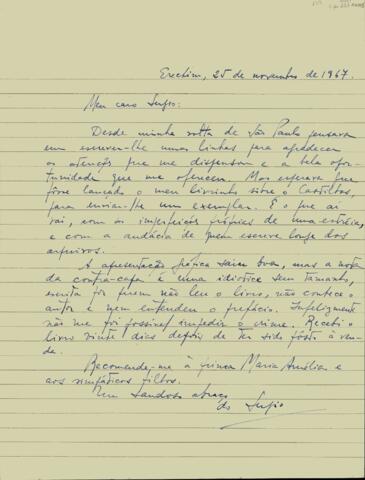 Erechim, 25 de novembro de 1967.
Meu caro Sérgio:
Desde minha volta de São Paulo pensava
em escrever-lhe umas linhas para agradecer
as atenções que me dispensou e a bela opor-
tunidade que me ofereceu. Mas esperava que
fôsse lançado o meu livrinho sôbre o Castilhos,
para enviar-lhe um exemplar. É o que aí
vai, com as imperfeições próprias de uma estréia,
e com a audácia de quem escreve longe dos
arquivos.
A apresentação gráfica saiu boa, mas a nota
da contra-capa é uma idiotice sem tamanho,
escrita por quem não leu o livro, não conhece o
autor e nem entendeu o prefácio. Infelizmente
não me foi possível impedir o crime. Recebi o
livro vinte dias depois de ter sido pôsto à ven-
da.
Recomende-me à prima Maria Amélia e
aos simpáticos filhos.
Um saudoso abraço
do Sérgio